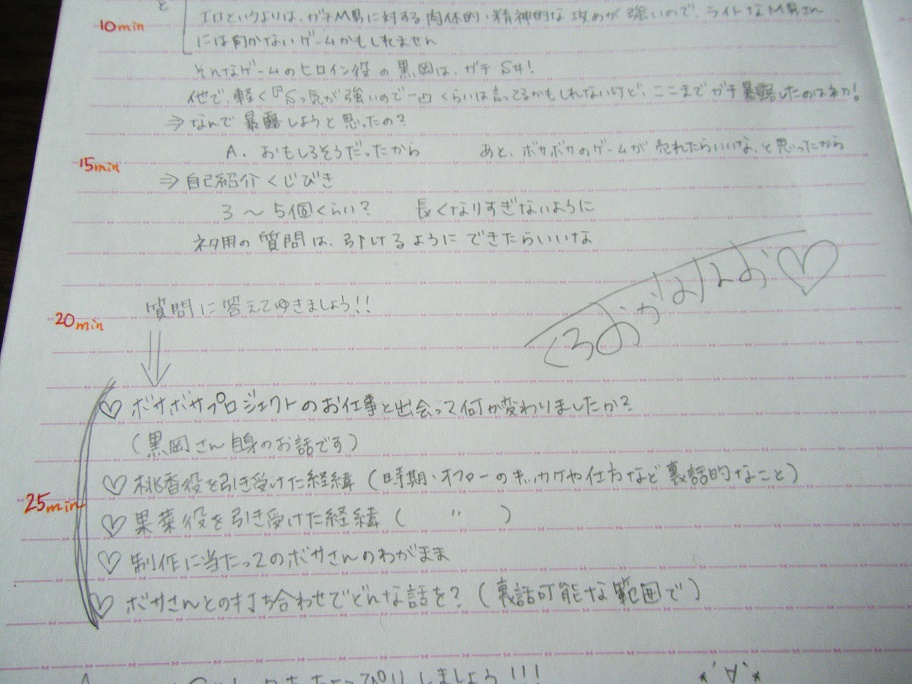 と
エロというよりは、ガチM男に対する肉体的・精神的な攻めが強いので、ライトなM男さん
10min
には向かないゲームかもしれません
そんなゲームのヒロイン役の黒岡は、ガチS女!
他で、軽く『Sっ気が強いので〜』くらいは言ってるかもしれないけど、ここまでガチ暴露したのはネカ!
⇒ なんで暴露しようと思ったの?
A. おもしろそうだったから あと、ボサボサのゲームが売れたらいいな、と思ったから
15min
⇒ 自己紹介くじびき
3〜5個くらい? 長くなりすぎないように
ネタ用の質問は、引けるようにできたらいいな
くろおか
♡
20min
質問に答えてゆきましょう!!
♡ ボサボサプロジェクトのお仕事と出会って何か変わりましたか?
(黒岡さん自身のお話です)
♡ 桃香役を引き受けた経緯(時期・オファーのキッカケや仕方など裏話的なこと)
25min
♡ 果菜役を引き受けた経緯( 〃 )
♡ 制作に当たってのボサさんのわがまま
♡ ボサさんとの打ち合わせでどんな話を?(裏話可能な範囲で)
しましょう!!!